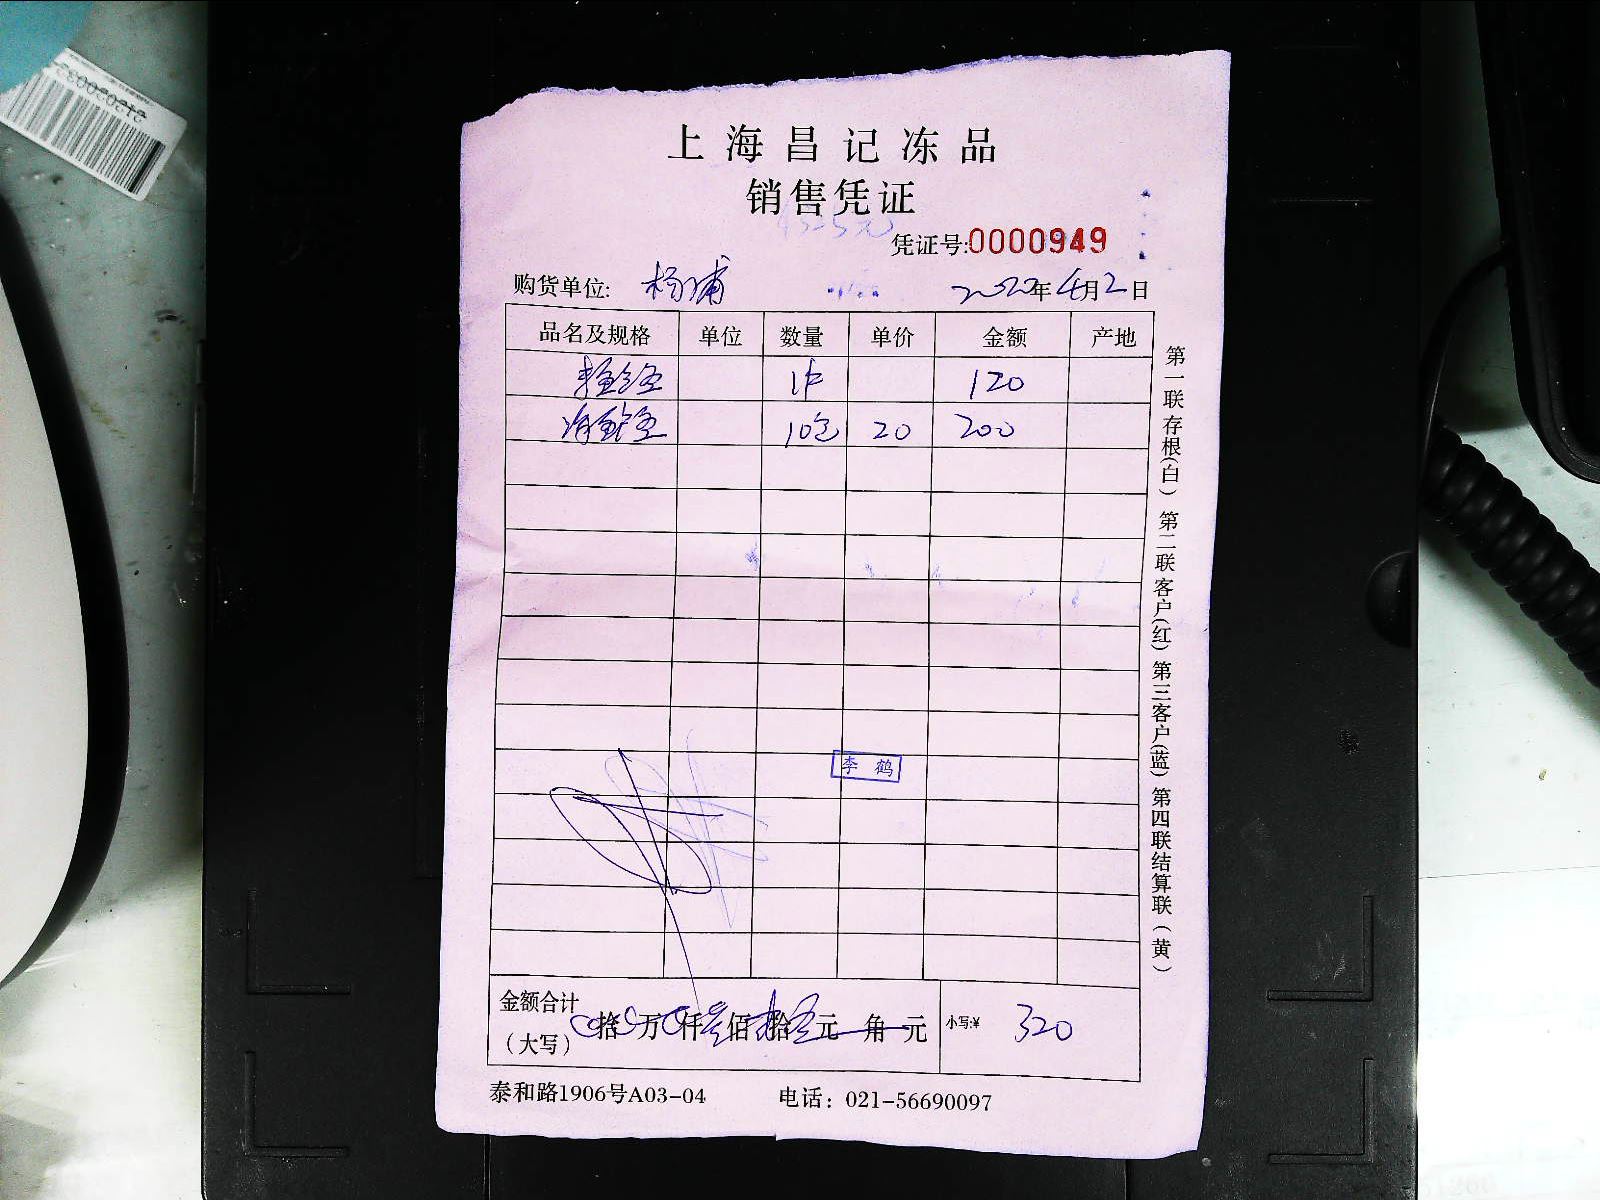 上海昌记冻品
销售凭证
凭证号:0000949
购货单位: 杨浦
2020年4月2日
品名及规格 单位 数量 单价 金额 产地
1件 120
10包 20 200
李鹤
金额合计
(大写)
拾 万 仟 佰 拾 元 角 元
小写:¥ 320
泰和路1906号A03-04 电话：021-56690097
第一联存根(白) 第二联客户(红) 第三客户(蓝) 第四联结算联(黄)